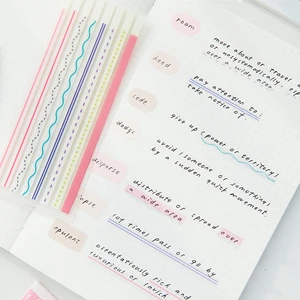 roam
move about or travel a
or unsystematically, esp
over a wide area
heed
pay attention to;
take notice of
cede
give up (power or territory)
dodge
avoid (someone or something)
by a sudden quick movement
disperse
distribute or spread over
a wide area
elapse
(of time) pass or go by
opulent
ostentatiously rich and
luxurious or lavish